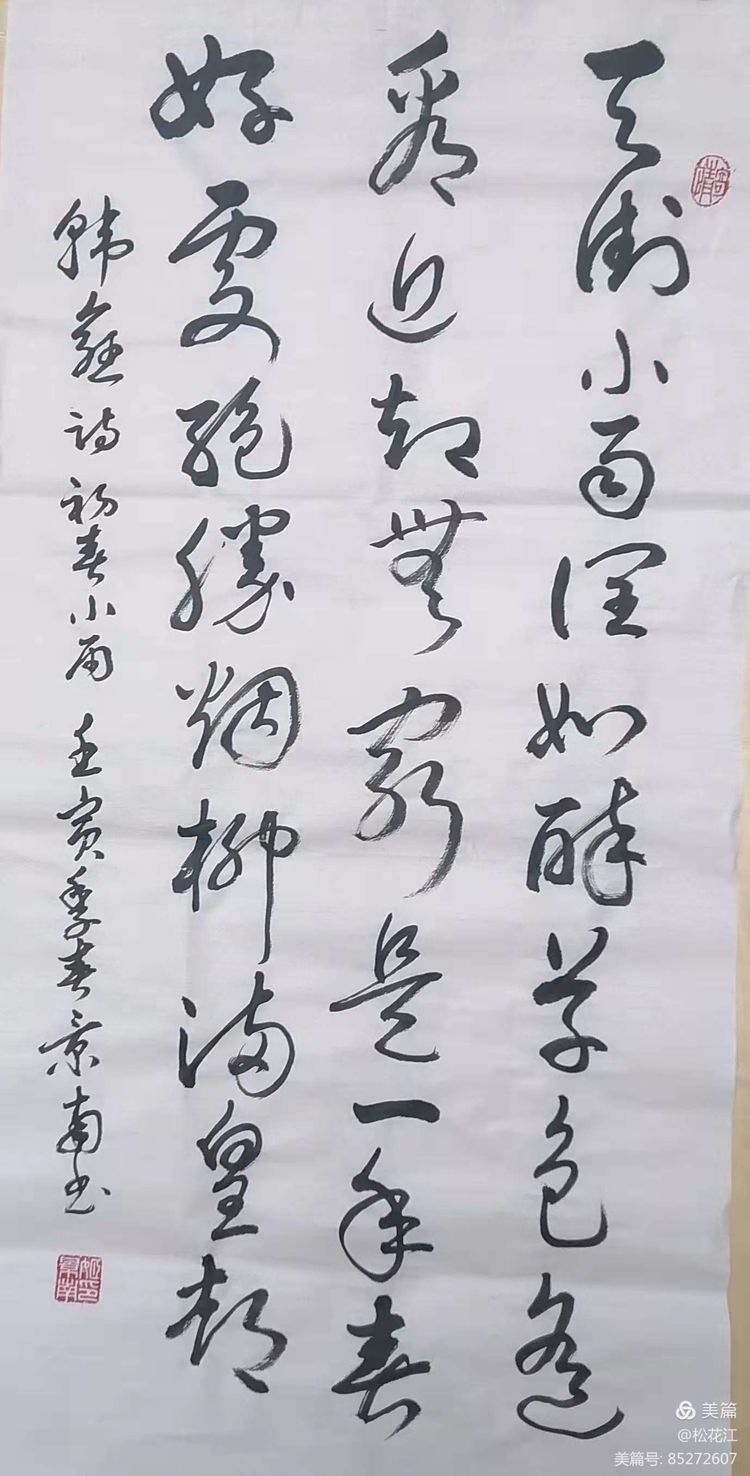 天街小雨润如酥草色遥
看近却無最是一年春
好處绝勝烟柳满皇都
韩愈诗初春小雨 壬寅季春景南书
美篇
@松花江
美篇号: 85272607